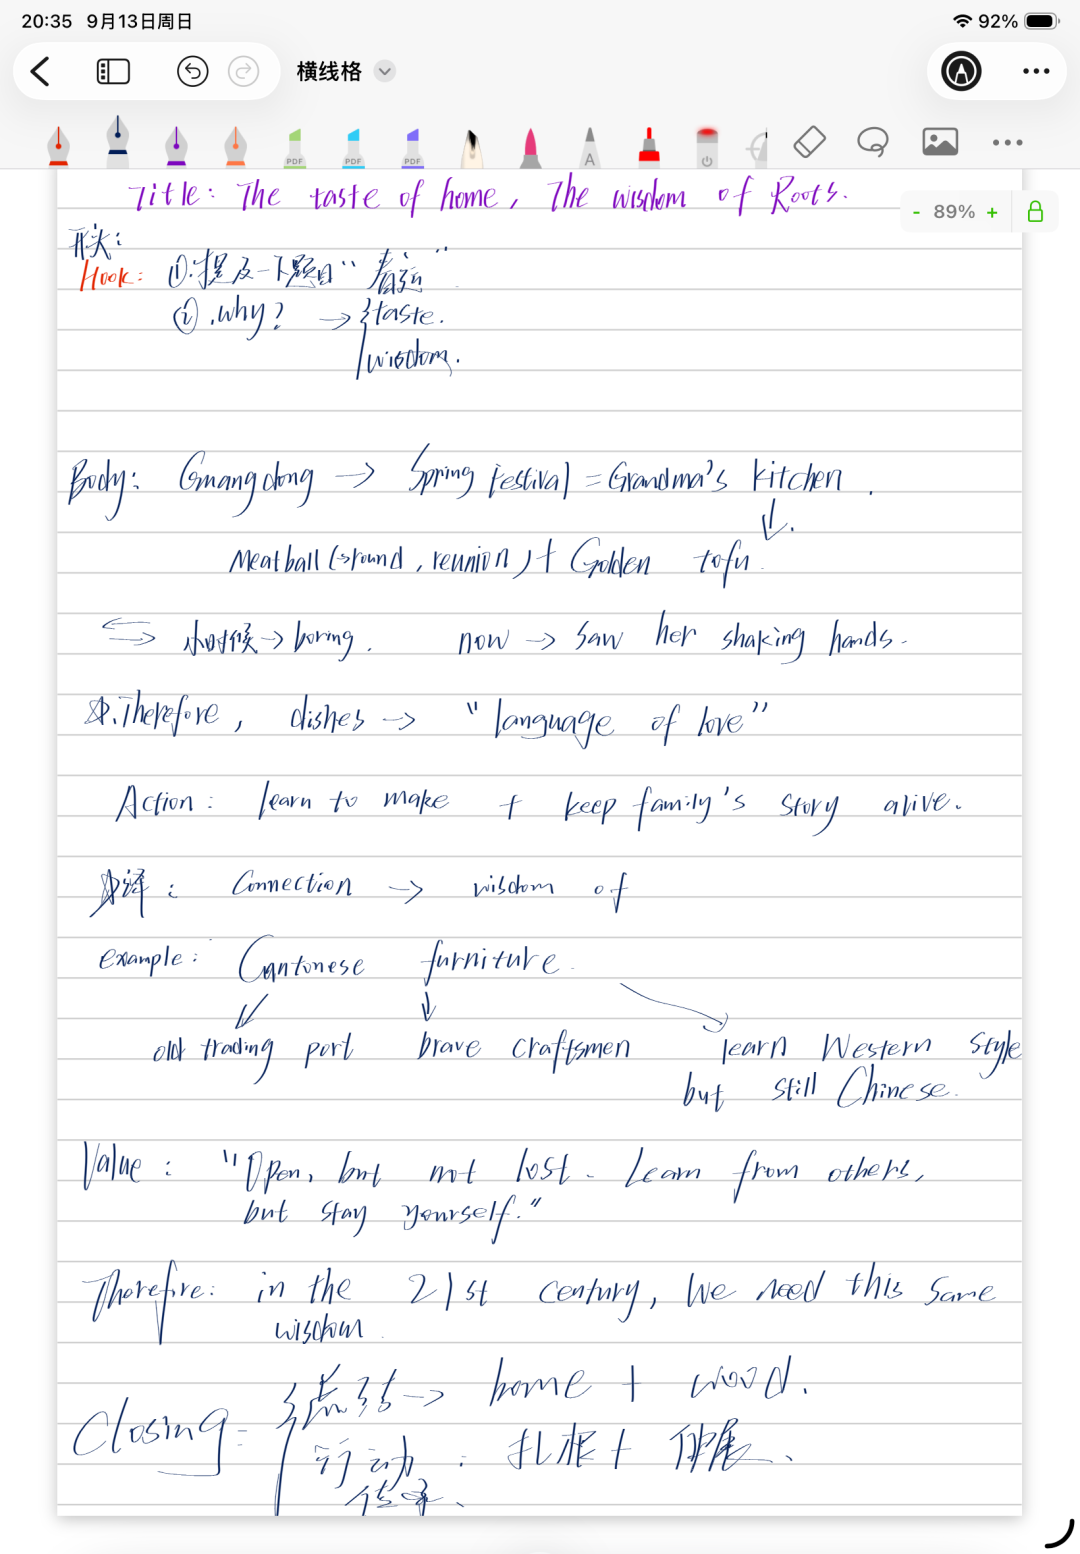 20:35 9月13日周日
92%
横线格
PDF PDF PDF A
- 89% +
Title: The taste of home, The wisdom of Roots.
Hook: ①.提及一下题目"春运"
②.why? → taste.
wisdom.
Body: Guangdong → Spring Festival = Grandma's kitchen.
↓.
Meatball (round, reunion) + Golden tofu.
小时候 → boring. now → saw her shaking hands.
Therefore, dishes → "language of love"
Action: learn to make + keep family's story alive.
Connection → wisdom of
example: Cantonese furniture.
old trading port brave craftsmen learn Western style
but still Chinese.
Value: "Open, but not lost. Learn from others,
but stay yourself."
Therefore: in the 21st century, we need this same
wisdom.
Closing: 总结 → home + wood.
行动: 扎根 + 伸展、
传承、